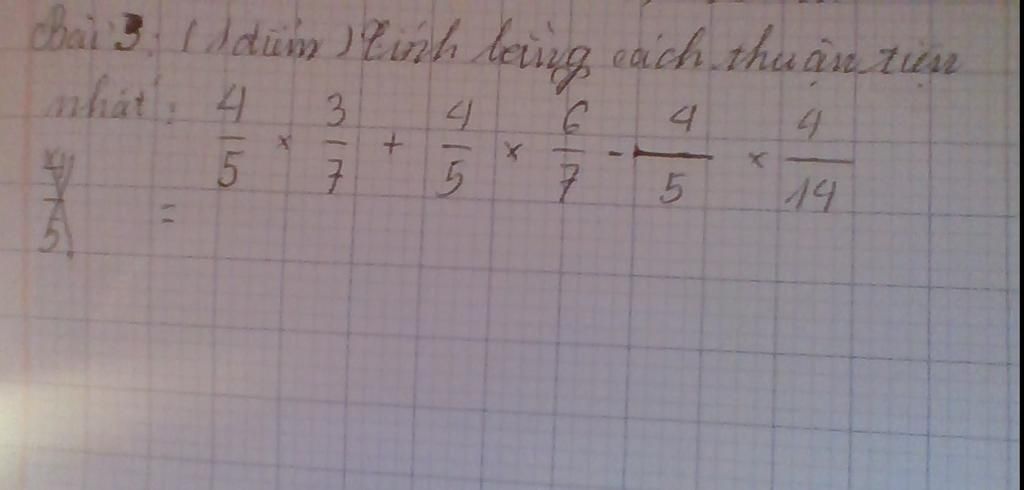 Bài 3: (1 điểm) Tính bằng cách thuận tiện
nhất: 4/5 × 3/7 + 4/5 × 6/7 - 4/5 × 4/14
=